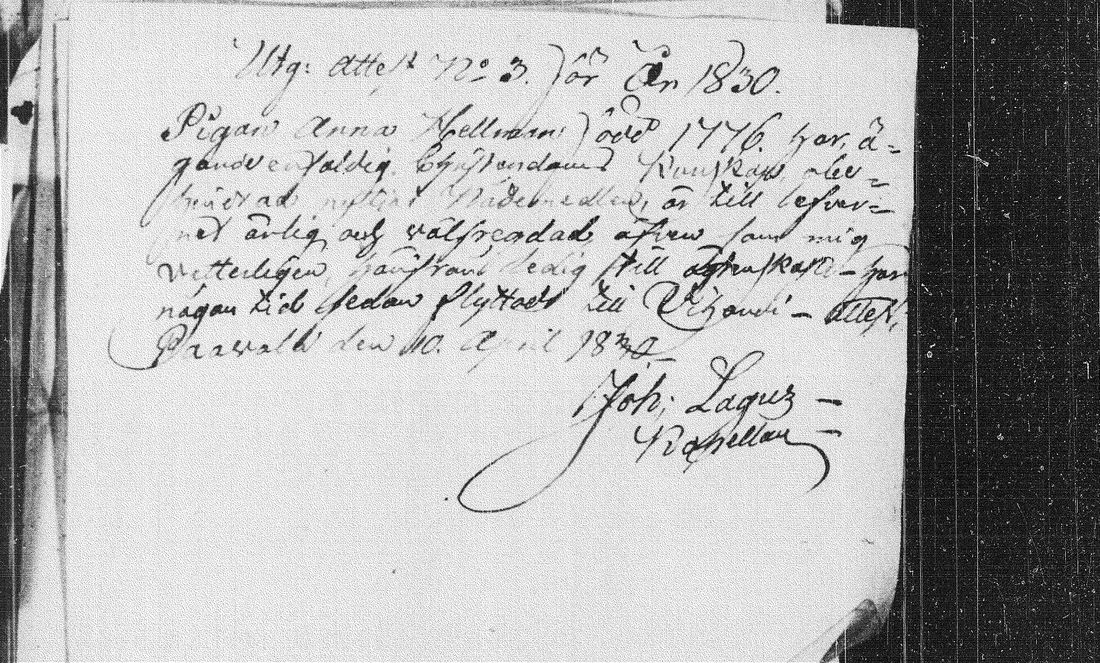 Utg: Attest No 3. för År 1830.
Pigan Anna Hellman född 1776. har, ä-
gande enfaldig Christendoms Kunskap, ober-
nyttjat Nådemedlen, är till lefver-
net ärlig och välfrejdad, äfven som mig
vetterligen, hinderslös ledig till ägtenskap – har
någon tid sedan flyttat till – attest.
Paavola den 10. April 1830
Joh: Lagus –
Kapellan –